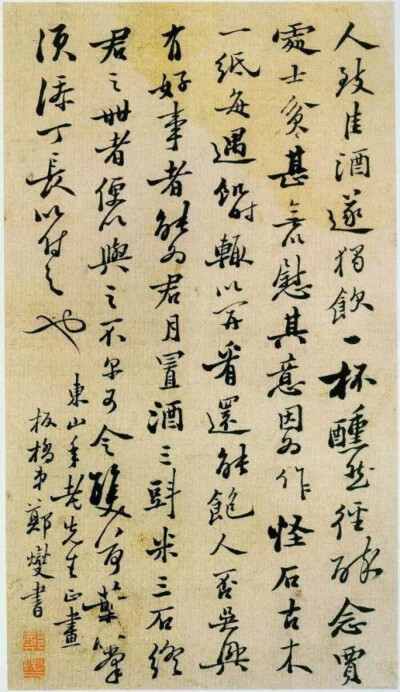 人致佳酒遂獨飲一杯醺然徑醉念賈
處士貧甚無以慰其意因為作怪石古木
一紙每遇飢時輒以開看還能飽人否吳興
有好事者能為君月置酒三㪷米三石終
君之世者便以與之不尔可令雙荷葉掌
須添丁長以付之也
東山年老先生正畫
板橋弟鄭燮書